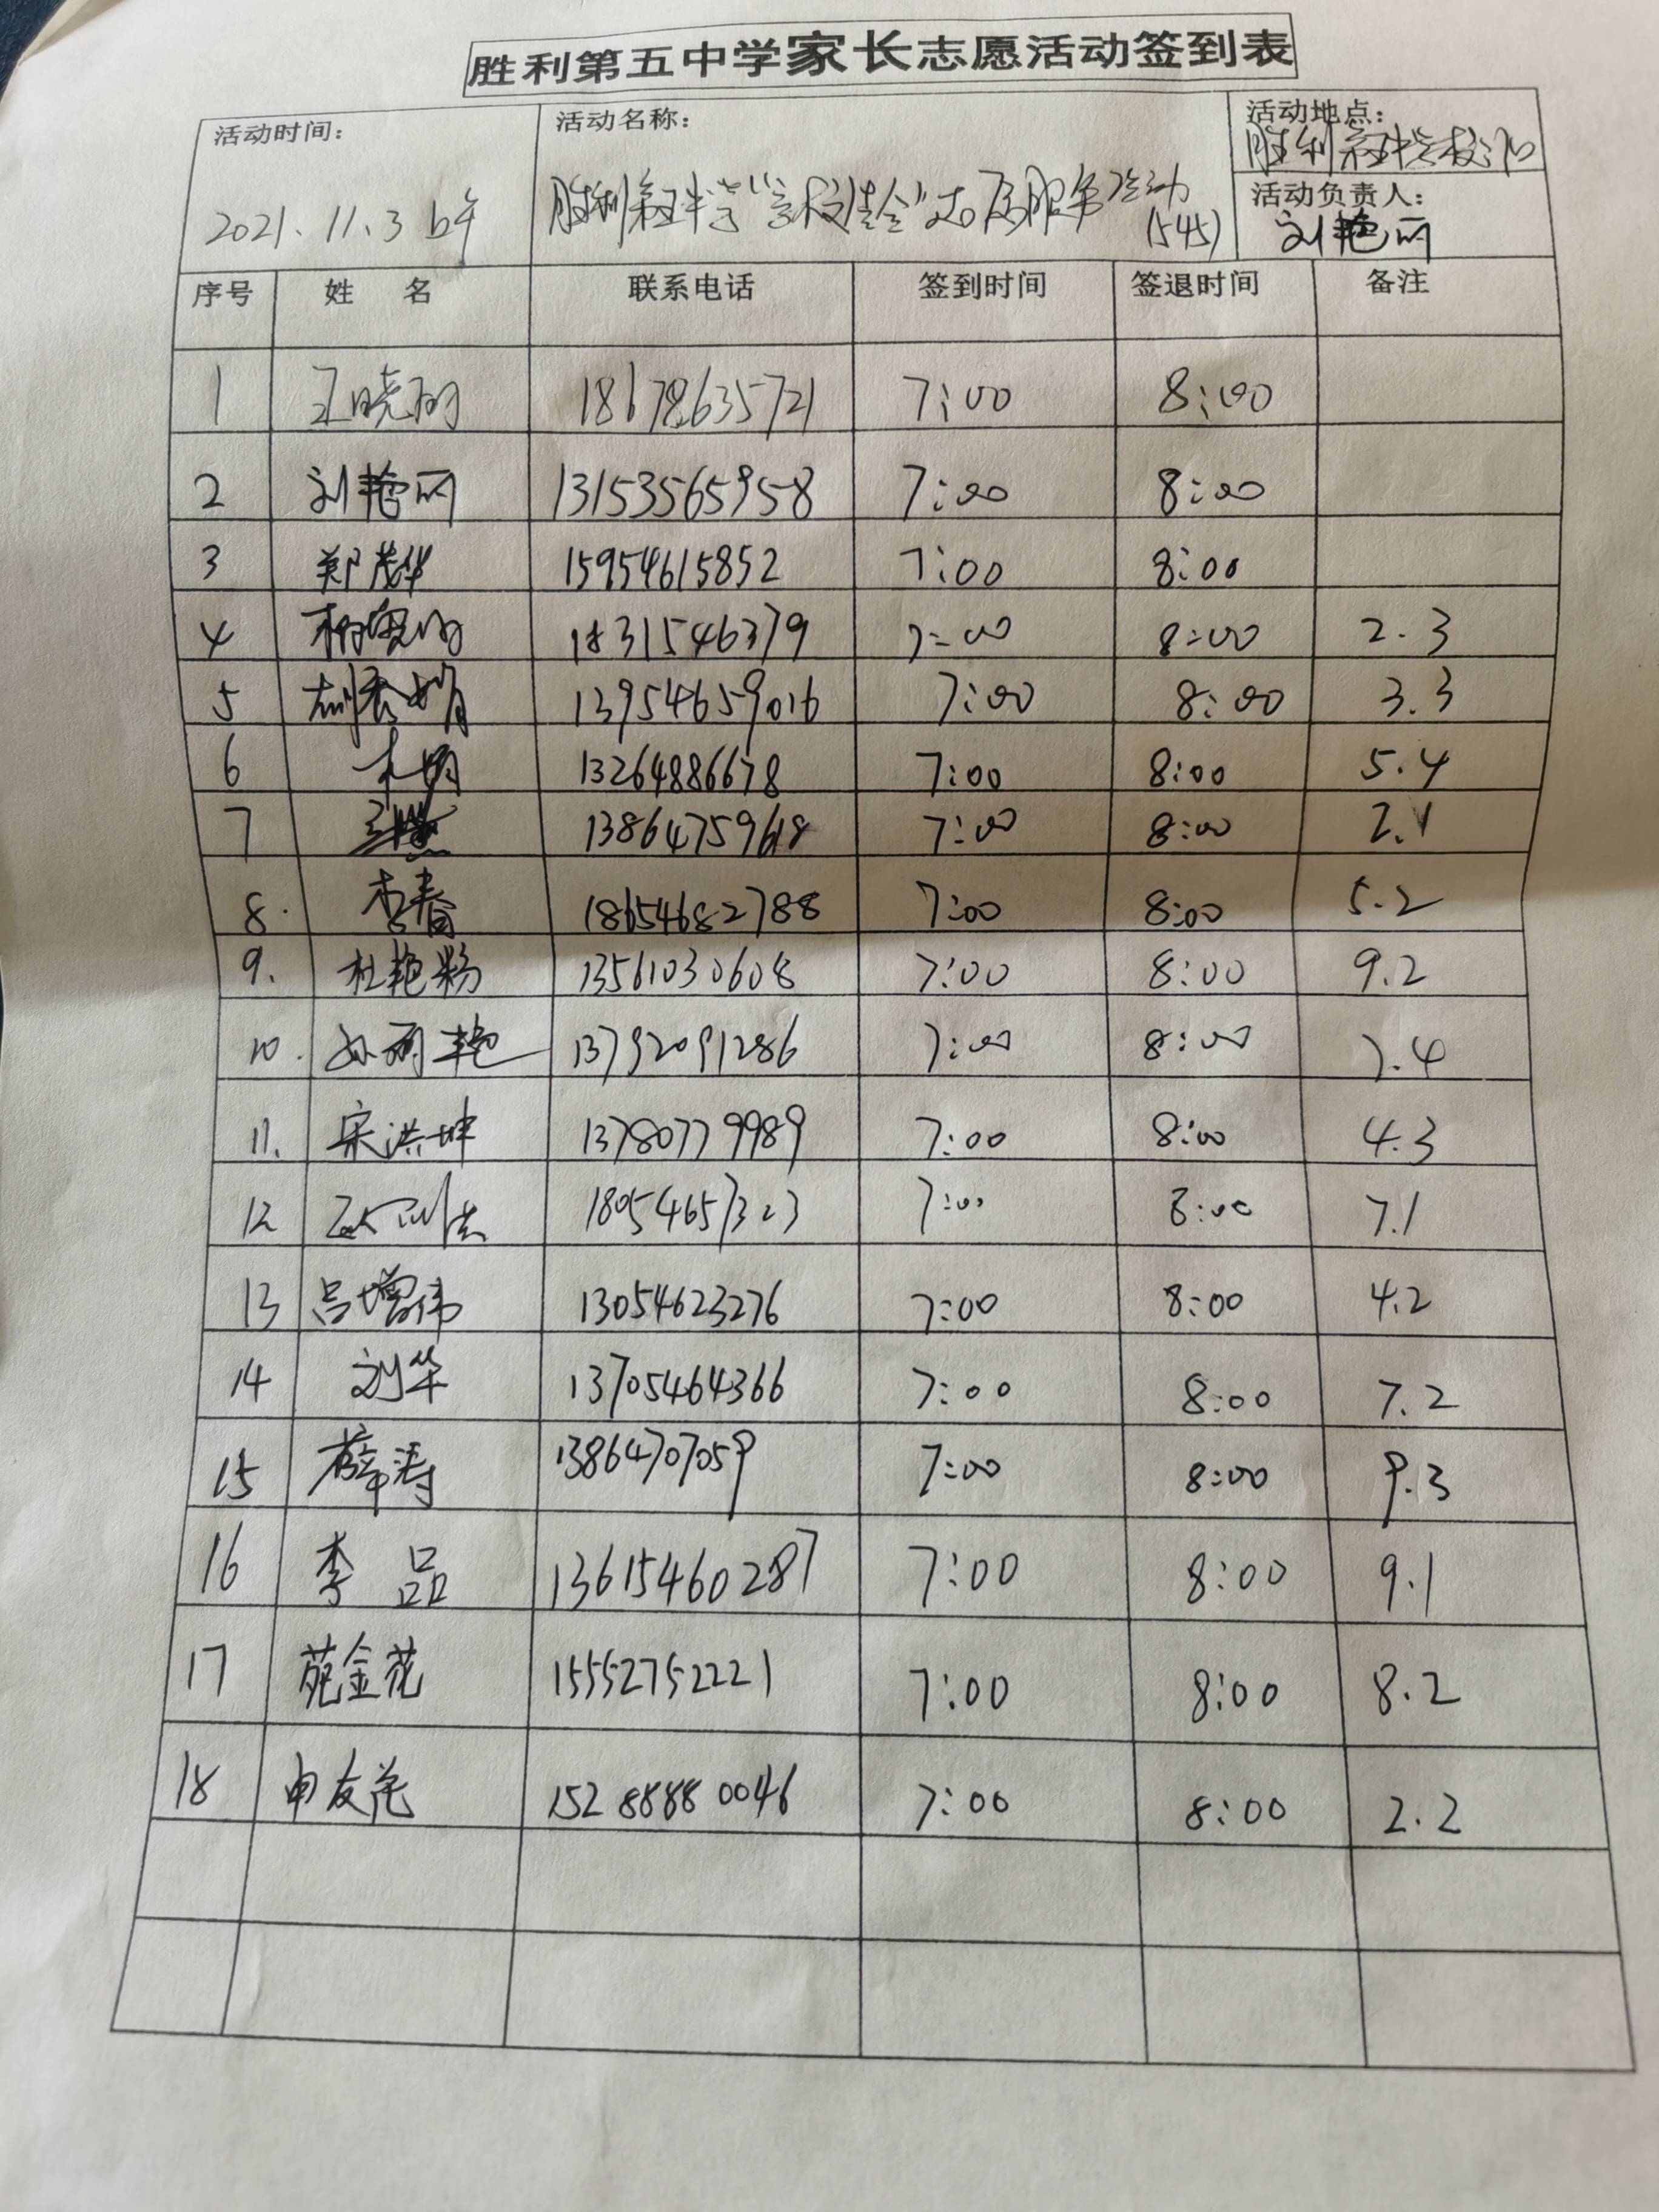 胜利第五中学家长志愿活动签到表
活动时间： 活动名称： 活动地点：
胜利第五中学校门口
2021.11.3 上午 胜利第五中学 志愿服务活动 活动负责人：
(545) 刘艳丽
序号 姓 名 联系电话 签到时间 签退时间 备注
1 王晓丽 18678635721 7:00 8:00
2 刘艳丽 13153565958 7:00 8:00
3 郑茂华 15954615852 7:00 8:00
4 1831546379 7:00 8:00 2.3
5 13954659016 7:00 8:00 3.3
6 13264886678 7:00 8:00 5.4
7 13864759618 7:00 8:00 2.1
8. 李春 18654682788 7:00 8:00 5.2
9. 杜艳粉 13561030608 7:00 8:00 9.2
10. 孙丽艳 13792091286 7:00 8:00 7.4
11. 宋洪坤 13780779989 7:00 8:00 4.3
12 18054657323 7:00 8:00 7.1
13 吕增伟 13054623276 7:00 8:00 4.2
14 刘华 13705464366 7:00 8:00 7.2
15 薛涛 13864707059 7:00 8:00 9.3
16 李 品 13615460287 7:00 8:00 9.1
17 苑金花 15552752221 7:00 8:00 8.2
18 申友花 152 8888 0046 7:00 8:00 2.2